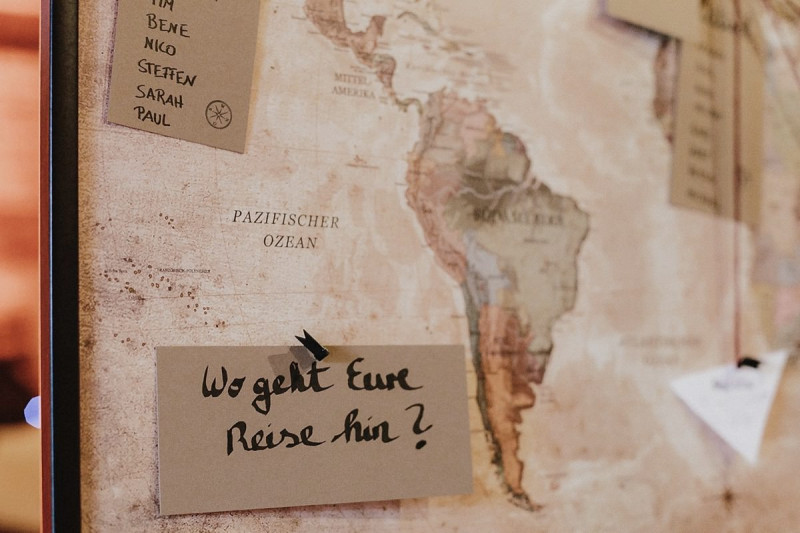 TIM
BENE
NICO
STEFFEN
SARAH
PAUL
MITTEL
AMERIKA
SÜDAMERIKA
PAZIFISCHER
OZEAN
Wo geht Eure
Reise hin?